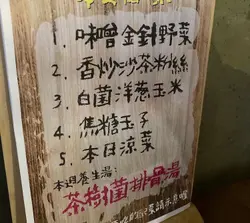 1. 味噌金針野菜
2. 香炒沙茶粉絲
3. 白菌洋蔥玉米
4. 焦糖玉子
5. 本日涼菜
本週養生湯
茶樹菌排骨湯